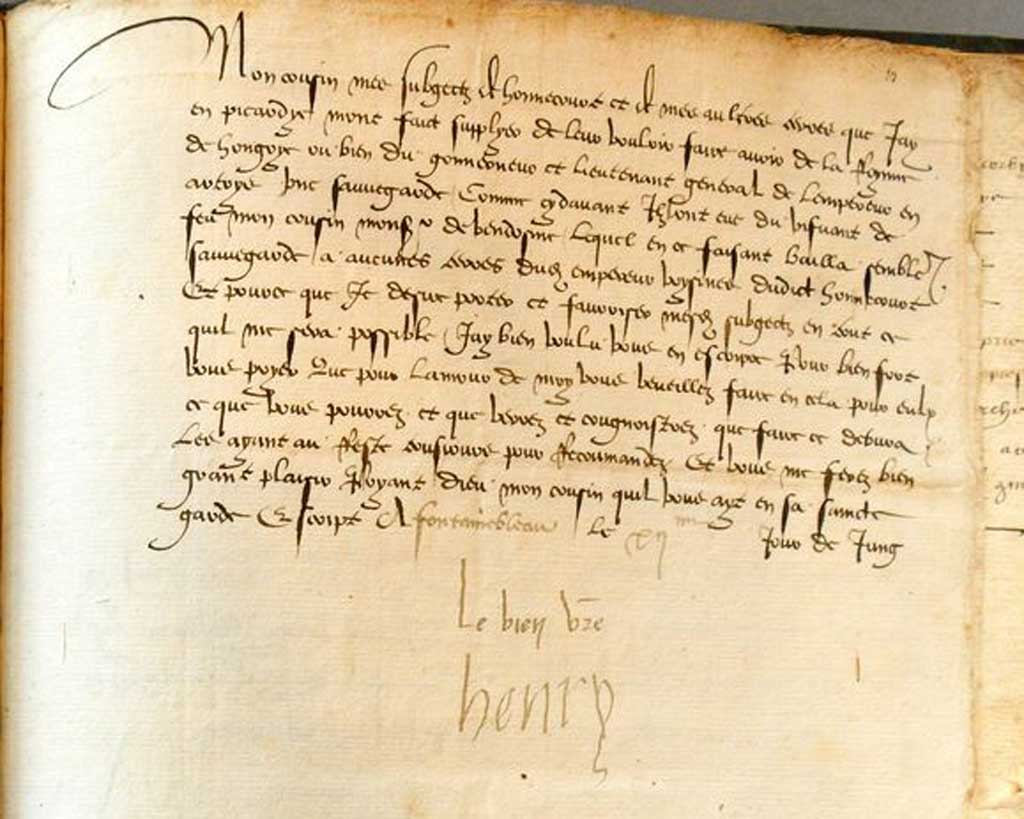 Mon cousin mes subgectz de honnecourt et de mes aultres terres que Jay
en picardye mont faict supplyer de leur vouloir faire avoir de la Royne
de hongrye ou bien du gouverneur et lieutenant general de lempereur en
artoys une sauvegarde Comme cydavant Ilz ont eue du vivant de
feu mon cousin monsr de vendosme lequel en ce faisant bailla semble
sauvegarde a aucunes terres dud empereur voysines dudict honnecourt
Et pource que Je desire porter et favoriser mesd subgectz en tout ce
quil me sera possible Jay bien voulu vous en escripre Pour bien fort
vous pryer Que pour lamour de moy vous veuillez faire en cela pour eulx
ce que vous pouvez et que verrez et cougnoistrez que faire ce debvra
Les ayant au Reste tousiours pour Recommandez Et vous me ferez bien
grant plaisir Pryant dieu mon cousin quil vous ayt en sa saincte
garde Escript A fontainebleau le Jour de Jung
Le bien vre
henry